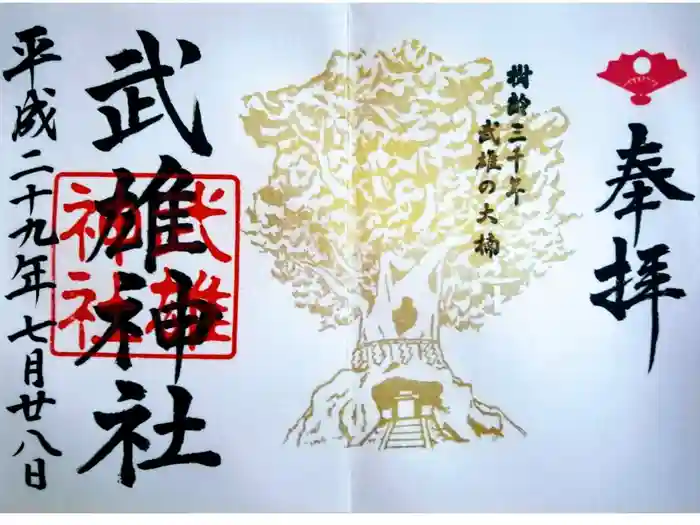 奉拝
樹齢三千年
武雄の大楠
武雄神社
武雄
神社
平成二十九年七月廿八日